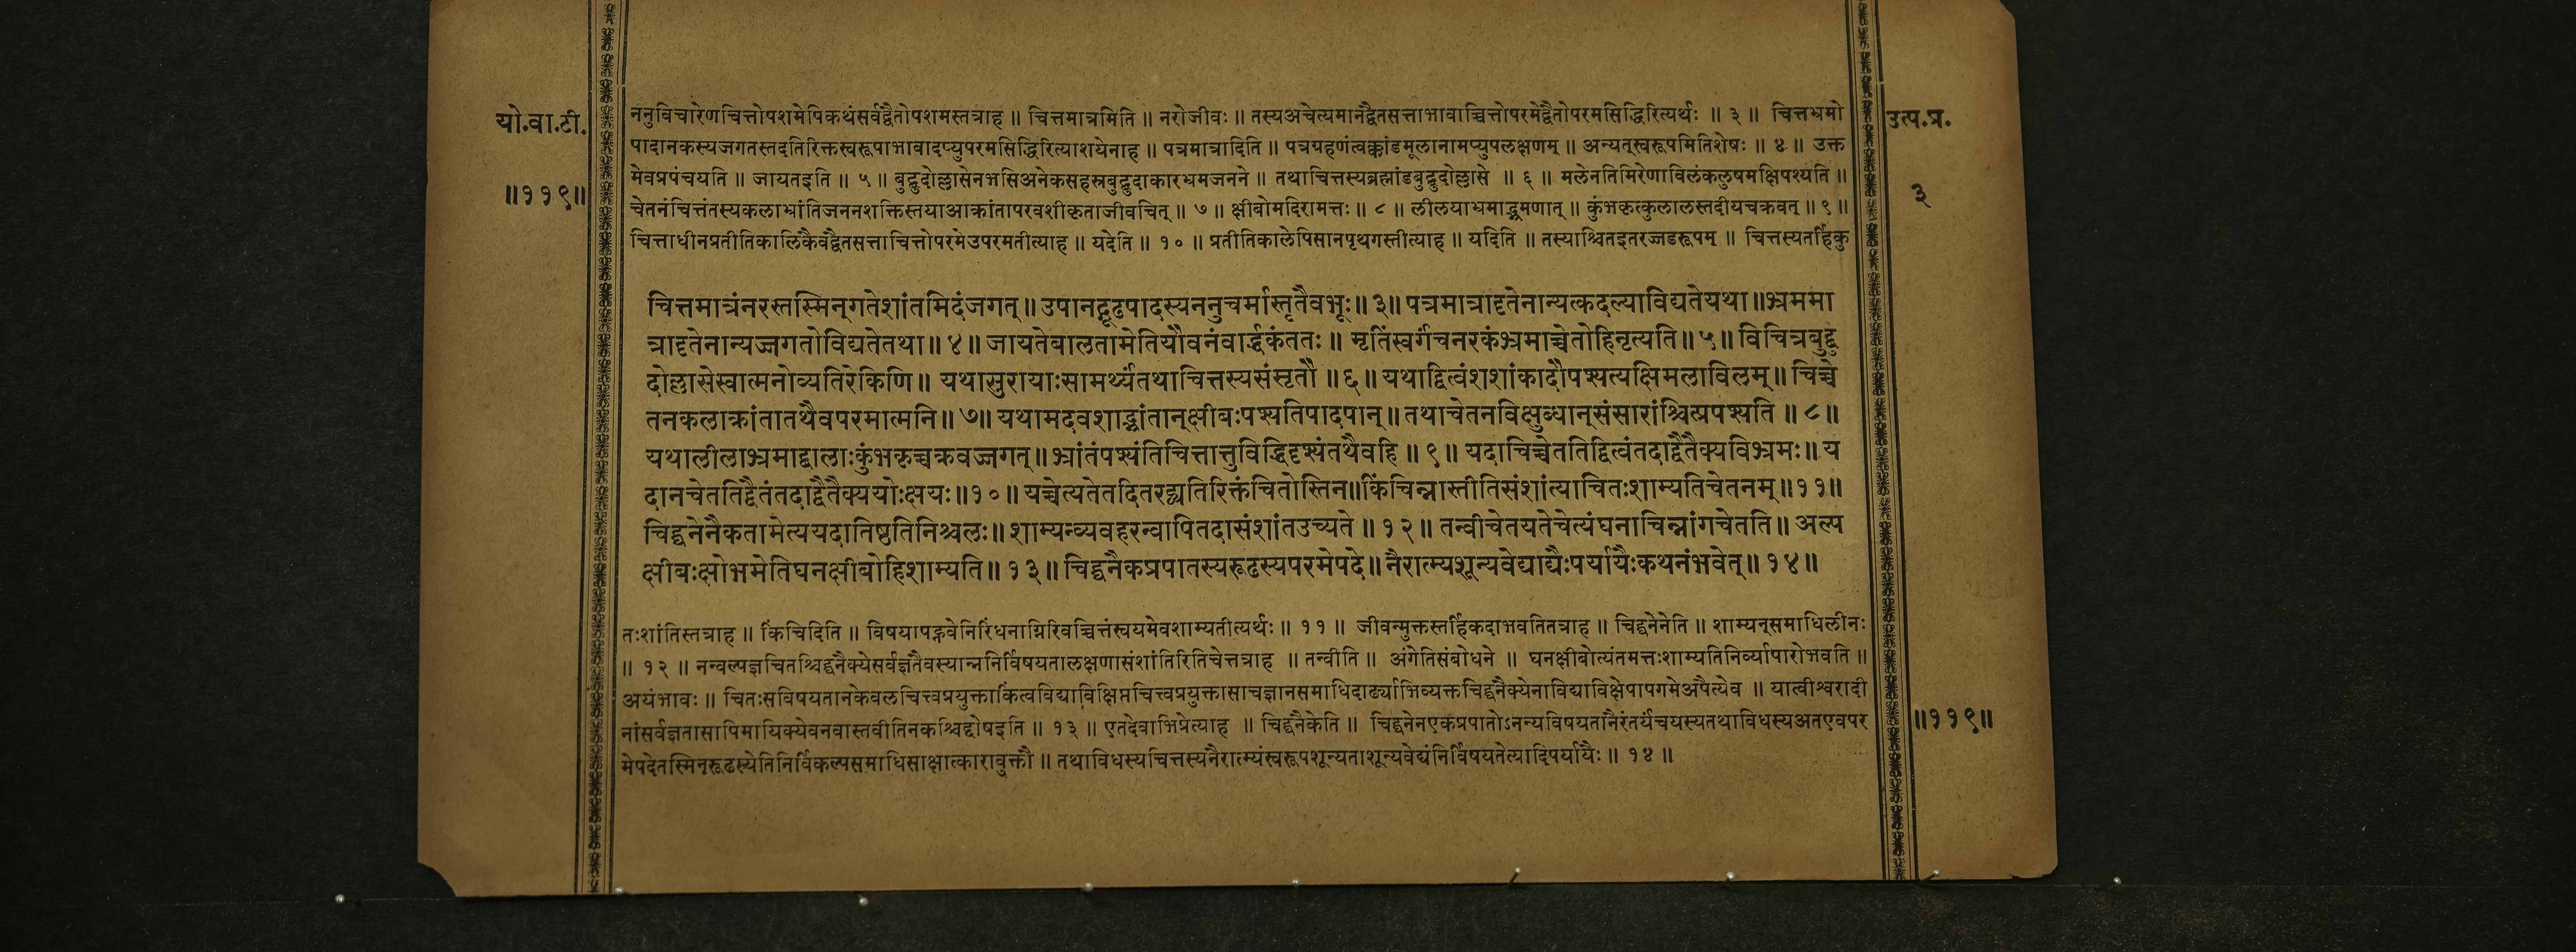 यो.वा.टी.
॥११९॥
उत्प.प्र.
३
ननुविचारेणचित्तोपशमेपिकथंसर्वद्वैतोपशमस्तत्राह ॥ चित्तमात्रमिति ॥ नरोजीवः ॥ तस्यअचेत्यमानद्वैतसत्ताभावाच्चित्तोपरमेद्वैतोपरमसिद्धिरित्यर्थः ॥ ३ ॥ चित्तभ्रमो
पादानकस्यजगतस्तदतिरिक्तस्वरूपाभावादप्युपरमसिद्धिरित्याशयेनाह ॥ पत्रमात्रादिति ॥ पत्रग्रहणंत्वक्कांडमूलानामप्युपलक्षणम् ॥ अन्यत्स्वरूपमितिशेषः ॥ ४ ॥ उक्त
मेवप्रपंचयति ॥ जायतइति ॥ ५ ॥ बुद्बुदोल्लासेनभसिअनेकसहस्रबुद्बुदाकारभ्रमजनने ॥ तथाचित्तस्यब्रह्मांडबुद्बुदोल्लासे ॥ ६ ॥ मलेनतिमिरेणाविलंकलुषमक्षिपश्यति ॥
चेतनंचित्तंतस्यकलाभ्रांतिजननशक्तिस्तयाआक्रांतापरवशीकृताजीवचित् ॥ ७ ॥ क्षीबोमदिरामत्तः ॥ ८ ॥ लीलयाभ्रमाद्भ्रमणात् ॥ कुंभकृत्कुलालस्तदीयचक्रवत् ॥ ९ ॥
चित्ताधीनप्रतीतिकालिकैवद्वैतसत्ताचित्तोपरमेउपरमतीत्याह ॥ यदेति ॥ १० ॥ प्रतीतिकालेपिसानपृथगस्तीत्याह ॥ यदिति ॥ तस्याश्चितइतरज्जडरूपम् ॥ चित्तस्यतर्हिकु
चित्तमात्रंनरस्तस्मिन्गतेशांतमिदंजगत् ॥ उपानद्गूढपादस्यननुचर्मास्तृतैवभूः ॥ ३ ॥ पत्रमात्रादृतेनान्यत्कदल्याविद्यतेयथा ॥ भ्रममा
त्रादृतेनान्यज्जगतोविद्यतेतथा ॥ ४ ॥ जायतेबालतामेतियौवनंवार्द्धकंततः ॥ मृतिंस्वर्गंचनरकंभ्रमाच्चेतोहिनृत्यति ॥ ५ ॥ विचित्रबुद्बु
दोल्लासेस्वात्मनोव्यतिरेकिणि ॥ यथासुरायाःसामर्थ्यंतथाचित्तस्यसंसृतौ ॥ ६ ॥ यथाद्वित्वंशशांकादौपश्यत्यक्षिमलाविलम् ॥ चिच्चे
तनकलाक्रांतातथैवपरमात्मनि ॥ ७ ॥ यथामदवशाद्भ्रांतान्क्षीबःपश्यतिपादपान् ॥ तथाचेतनविक्षुब्धान्संसारांश्चित्प्रपश्यति ॥ ८ ॥
यथालीलाभ्रमाद्बालाःकुंभकृच्चक्रवज्जगत् ॥ भ्रांतंपश्यंतिचित्तात्तुविद्धिदृश्यंतथैवहि ॥ ९ ॥ यदाचिच्चेततिद्वित्वंतदाद्वैतैक्यविभ्रमः ॥ य
दानचेततिद्वैतंतदाद्वैतैक्ययोःक्षयः ॥ १० ॥ यच्चेत्यतेतदितरद्व्यतिरिक्तंचितोस्तिन ॥ किंचिन्नास्तीतिसंशांत्याचितःशाम्यतिचेतनम् ॥ ११ ॥
चिद्घनेनैकतामेत्ययदातिष्ठतिनिश्चलः ॥ शाम्यन्व्यवहरन्वापितदासंशांतउच्यते ॥ १२ ॥ तन्वीचेतयतेचेत्यंघनाचिन्नांगचेतति ॥ अल्प
क्षीबःक्षोभमेतिघनक्षीबोहिशाम्यति ॥ १३ ॥ चिद्घनैकप्रपातस्यरूढस्यपरमेपदे ॥ नैरात्म्यशून्यवेद्याद्यैःपर्यायैःकथनंभवेत् ॥ १४ ॥
तःशांतिस्तत्राह ॥ किंचिदिति ॥ विषयापह्नवेनिरिंधनाग्निरिवच्चित्तंस्वयमेवशाम्यतीत्यर्थः ॥ ११ ॥ जीवन्मुक्तस्तर्हिकदाभवतितत्राह ॥ चिद्घनेनेति ॥ शाम्यन्समाधिलीनः
॥ १२ ॥ नन्वल्पज्ञचितश्चिद्घनैक्येसर्वज्ञतैवस्यान्ननिर्विषयतालक्षणासंशांतिरितिचेत्तत्राह ॥ तन्वीति ॥ अंगेतिसंबोधने ॥ घनक्षीबोत्यंतमत्तःशाम्यतिनिर्व्यापारोभवति ॥
अयंभावः ॥ चितःसविषयतानकेवलचित्त्वप्रयुक्ताकिंत्वविद्याविक्षिप्तचित्त्वप्रयुक्तासाचज्ञानसमाधिदार्ढ्याभिव्यक्तचिद्घनैक्येनाविद्याविक्षेपापगमेअपैत्येव ॥ यात्वीश्वरादी
नांसर्वज्ञतासापिमायिक्येवनवास्तवीतिनकश्चिद्दोषइति ॥ १३ ॥ एतदेवाभिप्रेत्याह ॥ चिद्घनैकेति ॥ चिद्घनेनएकप्रपातोऽनन्यविषयतानैरंतर्यंचयस्यतथाविधस्यअतएवपर
मेपदेतस्मिन्रूढस्येतिनिर्विकल्पसमाधिसाक्षात्कारावुक्तौ ॥ तथाविधस्यचित्तस्यनैरात्म्यंस्वरूपशून्यताशून्यवेद्यंनिर्विषयतेत्यादिपर्यायैः ॥ १४ ॥
॥११९॥